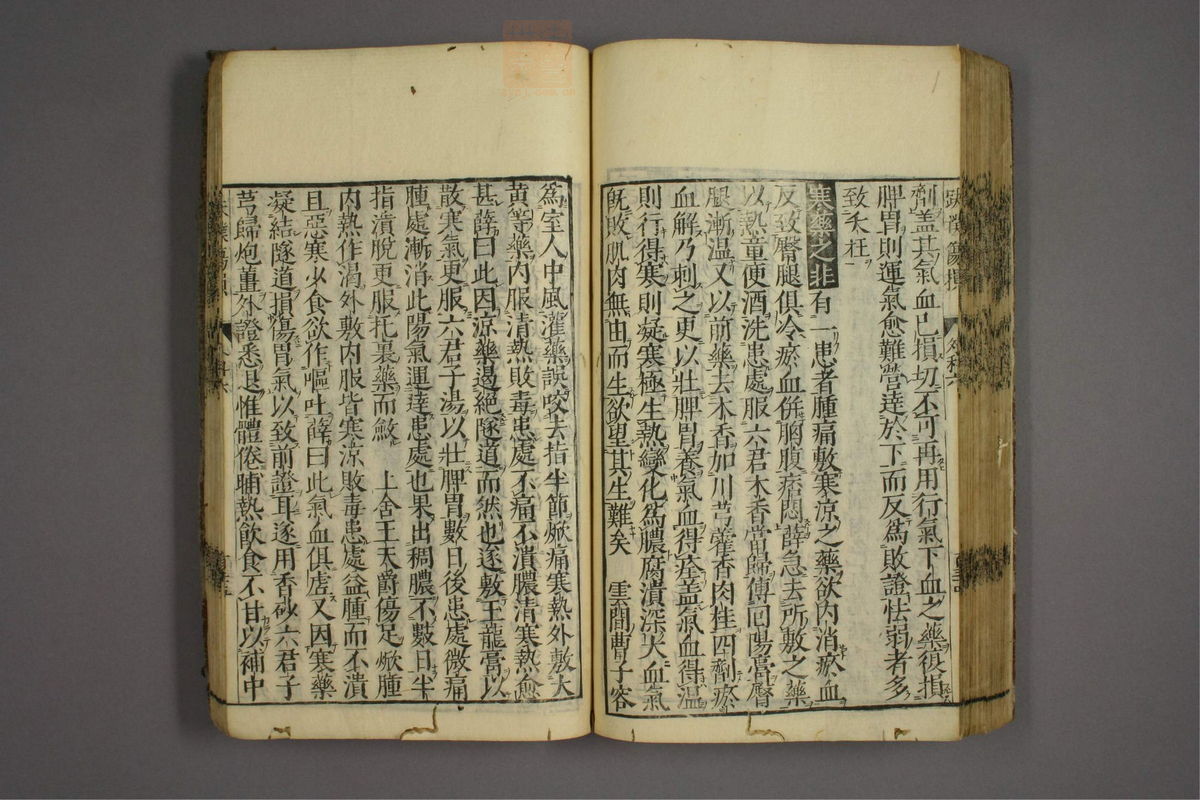 劑盖其氣血已損切不可再用行氣下血之藥復損
脾胃則運氣愈難營逹於下而反爲敗證怯弱者多
致夭枉
寒藥之非 有一患者腫痛敷寒凉之藥欲内消瘀血
反致臀腿俱冷瘀血併胸腹痞悶薛急去所敷之藥
以熱童便酒洗患處服六君木香當歸傅回陽膏臀
腿漸温又以前藥去木香加川芎藿香肉桂四劑瘀
血解乃刺之更以壯脾胃養氣血得痊盖氣血得温
則行得寒則凝寒極生熱變化爲膿腐潰深大血氣
既敗肌肉無由而生欲望其生難矣 雲間曹子容
爲室人中風灌藥誤咬去指半節焮痛寒熱外敷大
黄等藥内服清熱敗毒患處不痛不潰膿清寒熱愈
甚薛曰此因凉藥遏絕隧道而然也遂敷玉龍膏以
散寒氣更服六君子湯以壯脾胃數日後患處微痛
腫處漸消此陽氣運逹患處也果出稠膿不數日半
指潰脱更服托裏藥而斂 上舍王天爵傷足焮腫
内熱作渴外敷内服皆寒凉敗毒患處益腫而不潰
且惡寒少食欲作嘔吐薛曰此氣血俱虛又因寒藥
凝結隧道損傷胃氣以致前證耳遂用香砂六君子
芎歸炮薑外證悉退惟體倦晡熱飲食不甘以補中